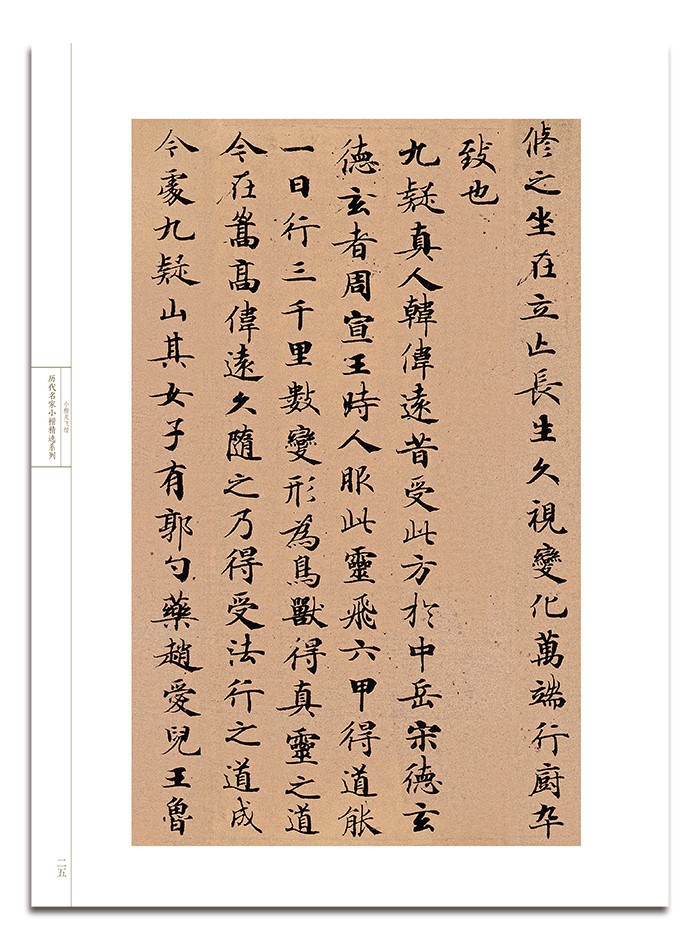 脩之坐在立亡長生久視變化万端行厨卒
致也
九疑真人韓偉遠昔受此方於中岳宋德玄
德玄者周宣王時人服此靈飛六甲得道能
一日行三千里數變形為鳥獸得真靈之道
今在嵩高偉遠久隨之乃得受法行之道成
今處九疑山其女子有郭勺藥趙愛兒王魯
小楷灵飞经
历代名家小楷精选系列
二五